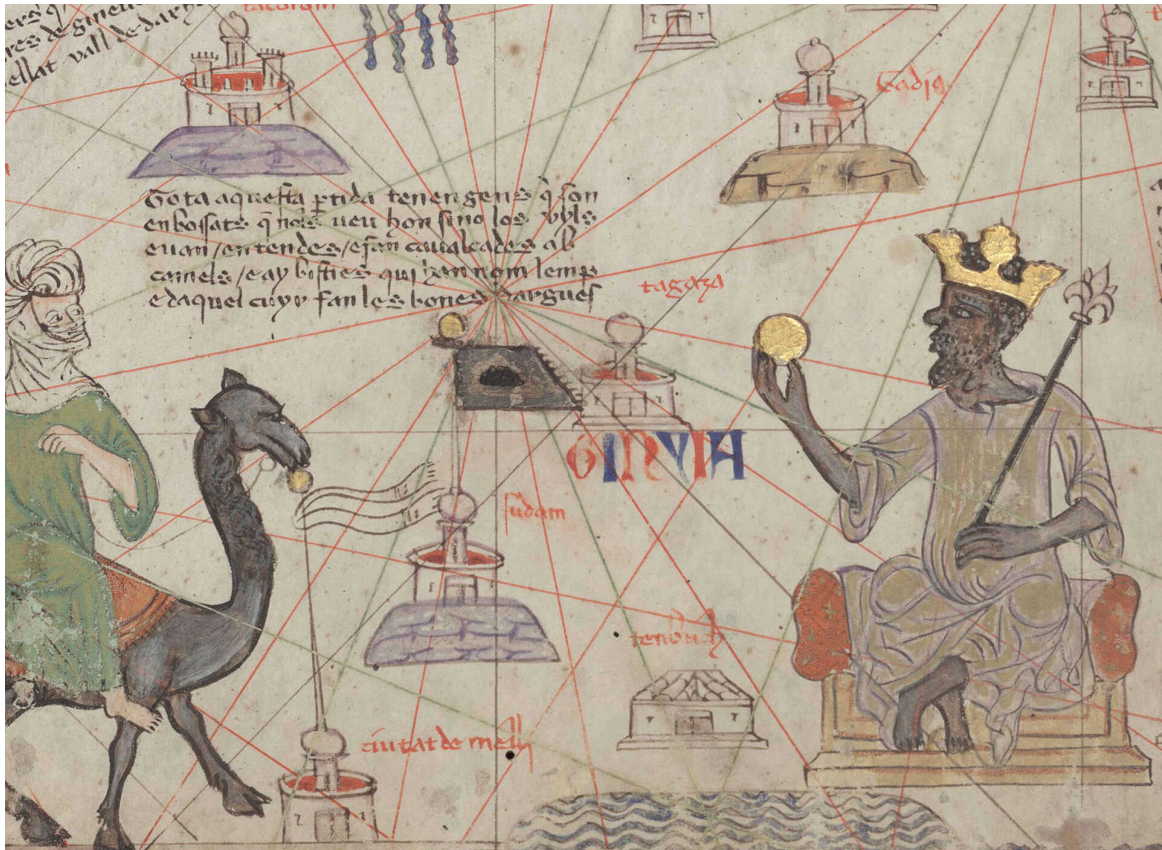 tacorom
res de ginel
ellat vall de darh
Gadia
Tota aquesta ptida tenen gens q̃ son
enbossats q̃ nols veu hom sino los uyls
e uan entendes / e fan caualcades ab
camels / e ay bisties qui han nom lemp
e daquel cuyr fan les bones dargues
tagaza
GINYIA
sudam
tenbuch
ciutat de melli